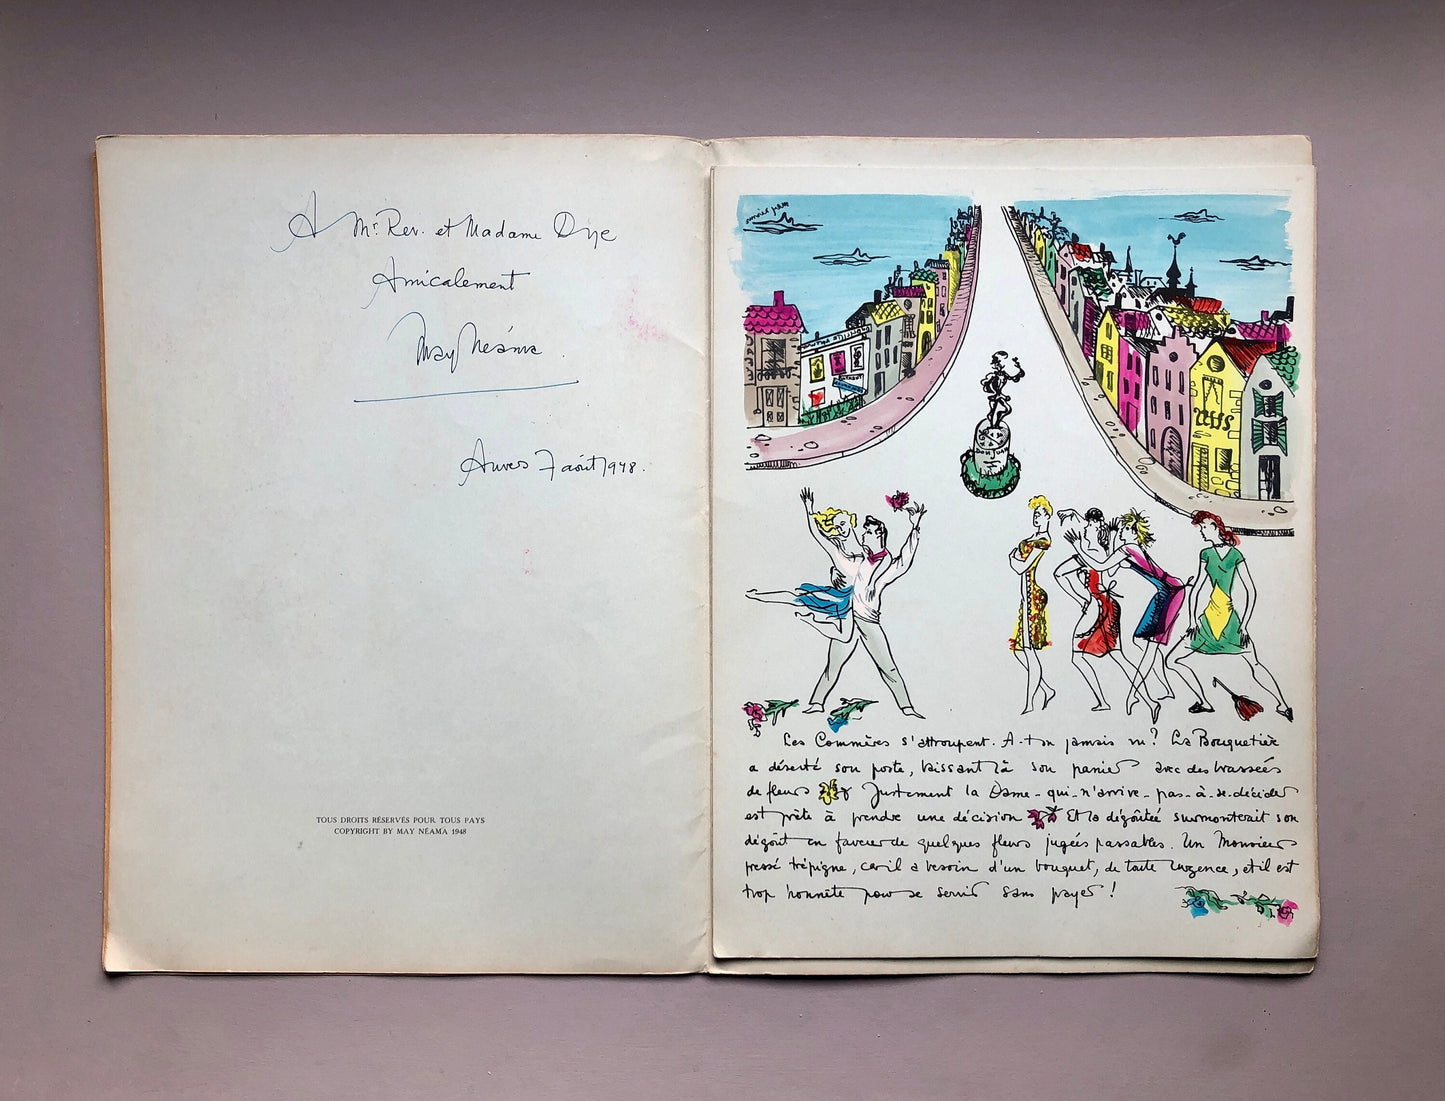 A Mr. Rev. et Madame Dye
Amicalement
May Néama.
Anvers 7 août 1948.
TOUS DROITS RÉSERVÉS POUR TOUS PAYS
COPYRIGHT BY MAY NÉAMA 1948
Les Commères s'attroupent. A-t-on jamais vu? La Bouquetière
a déserté son poste, laissant là son panier avec des brassées
de fleurs Justement la Dame-qui-n'arrive-pas-à-se-décider
est prête à prendre une décision Et la dégoûtée surmonterait son
dégoût en faveur de quelques fleurs jugées passables. Un Monsieur
pressé trépigne, car il a besoin d'un bouquet, de toute urgence, et il est
trop honnête pour se servir sans payer!